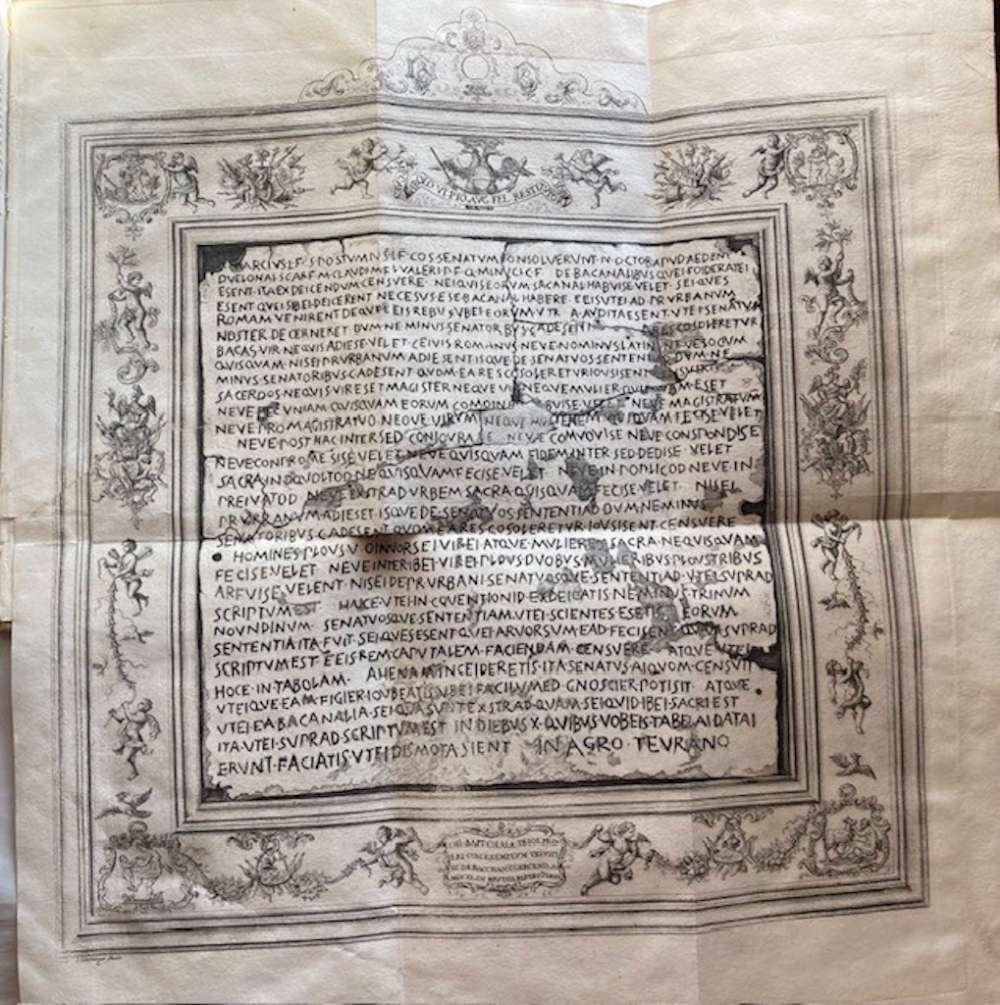 MARCIVS·L·F·S·POSTVMIVS·L·F·COS·SENATVM·CONSOLVERVNT·N·OCTOB·APVD·AEDEM
DVELONAI·SC·ARF·M·CLAVDI·M·F·L·VALERI·P·F·Q·MINVCI·C·F· DE·BACANALIBVS·QVEI·FOIDERATEI
ESENT·ITA·EXDEICENDVM·CENSVERE· NEIQVIS·EORVM·SACANAL·HABVISE·VELET· SEI·QVES
ESENT·QVEI·SIBEI·DEICERENT NECESVS·ESE·BACANAL·HABERE· EEIS·VTEI·AD·PR·VRBANVM
ROMAM·VENIRENT·DEQVE·EEIS·REBVS·VBEI·EORVM·VTR A·AVDITA·ESENT·VTEI·SENATVS
NOSTER·DECERNERET· DVM·NE·MINVS·SENATORBVS·C·ADESENT COSOLERETVR
BACAS·VIR·NEQVIS·ADIESE·VELET·CEIVIS·ROMANVS·NEVE·NOMINVS·LATIN NEVE·SOCIVM
QVISQVAM·NISEI·PR·VRBANVM·ADIESENT·ISQVE·DE·SENATVOS·SENTENTIAD DVM·NE
MINVS·SENATORIBVS·C·ADESENT·QVOM·EA·RES·COSOLERETVR·IOVSISENT
SACERDOS·NEQVIS·VIR·ESET·MAGISTER·NEQVE·VIR NEQVE·MVLIER ESET
NEVE·PECVNIAM·QVISQVAM·EORVM·COMOINE ABVISE·VELET· NEVE·MAGISTRATVM
NEVE·PRO·MAGISTRATVO·NEQVE·VIRVM NEQVE·MVLIEREM·QVIQVAM·FECISE·VELET
NEVE·POST·HAC·INTERSED·CONIOVRASE· NEVE·COMVOVISE·NEVE·CONSPONDISE
NEVE·CONPROMESISE·VELET·NEVE·QVISQVAM·FIDEM·INTERSED·DEDISE·VELET
SACRA·INDQVOLTOD·NE·QVISQVAM·FECISE·VELET· NEVE·IN·POPLICOD·NEVE·IN
PREIVATOD NEVE·EXSTRAD·VRBEM·SACRA·QVISQVAM·FECISE·VELET· NISEI
PR·VRBANVM·ADIESET·ISQVE·DE·SENATVOS·SENTENTIAD·DVM·NEMINVS
SENATORIBVS·C·ADESENT·QVOM·EA·RES·COSOLERETVR·IOVSISENT·CENSVERE
HOMINES·PLOVS·V·OINVORSEI·VIREI·ATQVE·MVLIERES·SACRA·NE·QVISQVAM
FECISE·VELET NEVE·INTER·IBEI·VIREI·PLOVS·DVOBVS·MVLIERIBVS·PLOVS·TRIBVS
ARFVISE·VELENT·NISEI·DE·PR·VRBANI·SENATVOSQVE·SENTENTIAD·VTEI·SVPRAD
SCRIPTVM·EST HAICE·VTEI·IN·COVENTIONID·EXDEICATIS·NE·MINVS·TRINVM
NOVNDINVM· SENATVOSQVE·SENTENTIAM·VTEI·SCIENTES·ESETIS EORVM
SENTENTIA·ITA·FVIT·SEI·QVES·ESENT·QVEI·ARVORSVM·EAD·FECISENT·QVAM·SVPRAD
SCRIPTVM·EST·EEIS·REM·CAPVTALEM·FACIENDAM·CENSVERE· ATQVE·VTEI
HOCE·IN·TABOLAM· AHENAM·INCEIDERETIS·ITA·SENATVS·AIQVOM·CENSVIT
VTEIQVE·EAM·FIGIER·IOVBEATIS·VBEI·FACILVMED·GNOSCIER·POTISIT· ATQVE
VTEI·EA·BACANALIA·SEI·QVA·SVNT·EXSTRAD·QVAM·SEI·QVID·IBEI·SACRI·EST
ITA·VTEI·SVPRAD·SCRIPTVM·EST IN·DIEBVS·X·QVIBVS·VOBEIS·TABELAI·DATAI
ERVNT·FACIATIS·VTEI·DISMOTA·SIENT IN·AGRO·TEVRANO